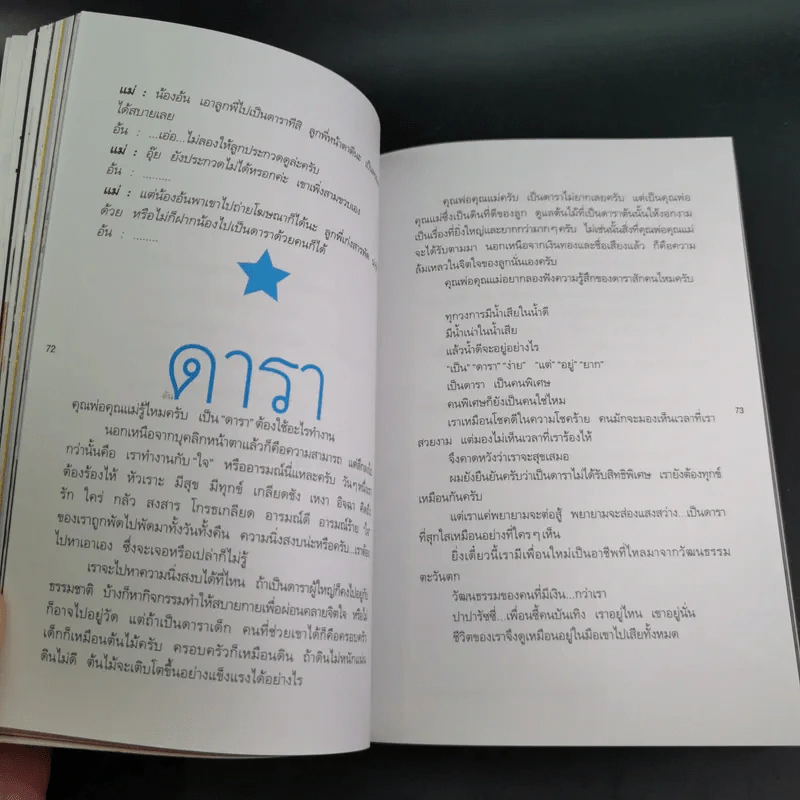 แม่ : น้องอ้น เอาลูกพี่ไปเป็นดาราทีสิ ลูกพี่หน้าตาดีนะ
ได้สบายเลย
อ้น : ...เอ่อ...ไม่ลองให้ลูกประกวดดูล่ะครับ
แม่ : อุ๊ย ยังประกวดไม่ได้หรอกค่ะ เขาเพิ่งสามขวบเอง
อ้น : .........
แม่ : แต่น้องอ้นพาเขาไปถ่ายโฆษณาก็ได้นะ ลูกพี่เก่งสารพัด
ด้วย หรือไม่ก็ฝากน้องไปเป็นดาราด้วยคนก็ได้
อ้น : ........
72
ดารา
คุณพ่อคุณแม่รู้ไหมครับ เป็น “ดารา” ต้องใช้อะไรทำงาน
นอกเหนือจากบุคลิกหน้าตาแล้วก็คือความสามารถ แต่ลึกลงไป
กว่านั้นคือ เราทำงานกับ “ใจ” หรืออารมณ์นี่แหละครับ วันๆหนึ่งเรา
ต้องร้องไห้ หัวเราะ มีสุข มีทุกข์ เกลียดชัง เหงา อิจฉา
รัก ใคร่ กลัว สงสาร โกรธเกลียด อารมณ์ดี อารมณ์ร้าย
ของเราถูกพัดไปพัดมาทั้งวันทั้งคืน ความนิ่งสงบน่ะหรือครับ...เราต้อง
ไปหาเอาเอง ซึ่งจะเจอหรือเปล่าก็ไม่รู้
เราจะไปหาความนิ่งสงบได้ที่ไหน ถ้าเป็นดาราผู้ใหญ่ก็คงไปอยู่กับ
ธรรมชาติ บ้างก็หากิจกรรมทำให้สบายกายเพื่อผ่อนคลายจิตใจ หรือไม่
ก็อาจไปอยู่วัด แต่ถ้าเป็นดาราเด็ก คนที่ช่วยเขาได้ก็คือครอบครัว
เด็กก็เหมือนต้นไม้ครับ ครอบครัวก็เหมือนดิน ถ้าดินไม่หนักแน่น
ดินไม่ดี ต้นไม้จะเติบโตขึ้นอย่างแข็งแรงได้อย่างไร
คุณพ่อคุณแม่ครับ เป็นดาราไม่ยากเลยครับ แต่เป็นคุณพ่อ
คุณแม่ซึ่งเป็นดินที่ดีของลูก ดูแลต้นไม้ที่เป็นดาราต้นนั้นให้งอกงาม
เป็นเรื่องที่ยิ่งใหญ่และยากกว่ามากๆครับ ไม่เช่นนั้นสิ่งที่คุณพ่อคุณแม่
จะได้รับตามมา นอกเหนือจากเงินทองและชื่อเสียงแล้ว ก็คือความ
ล้มเหลวในจิตใจของลูกนั่นเองครับ
คุณพ่อคุณแม่อยากลองฟังความรู้สึกของดาราสักคนไหมครับ
ทุกวงการมีน้ำเสียในน้ำดี
มีน้ำเน่าในน้ำเสีย
แล้วน้ำดีจะอยู่อย่างไร
“เป็น” “ดารา” “ง่าย” “แต่” “อยู่” “ยาก”
เป็นดารา เป็นคนพิเศษ
คนพิเศษก็ยังเป็นคนใช่ไหม
เราเหมือนโชคดีในความโชคร้าย คนมักจะมองเห็นเวลาที่เรา
สวยงาม แต่มองไม่เห็นเวลาที่เราร้องไห้
จึงคาดหวังว่าเราจะสุขเสมอ
ผมยังยืนยันครับว่าเป็นดาราไม่ได้รับสิทธิพิเศษ เรายังต้องทุกข์
เหมือนกันครับ
แต่เราแค่พยายามจะต่อสู้ พยายามจะส่องแสงสว่าง...เป็นดารา
ที่สุกใสเหมือนอย่างที่ใครๆเห็น
ยิ่งเดี๋ยวนี้เรามีเพื่อนใหม่เป็นอาชีพที่ไหลมาจากวัฒนธรรม
ตะวันตก
วัฒนธรรมของคนที่มีเงิน...กว่าเรา
ปาปารัซซี่...เพื่อนซี้คนบันเทิง เราอยู่ไหน เขาอยู่นั่น
ชีวิตของเราจึงดูเหมือนอยู่ในมือเขาไปเสียทั้งหมด
73